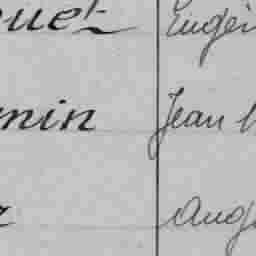 ouet Eugèn
min Jean
r Aug